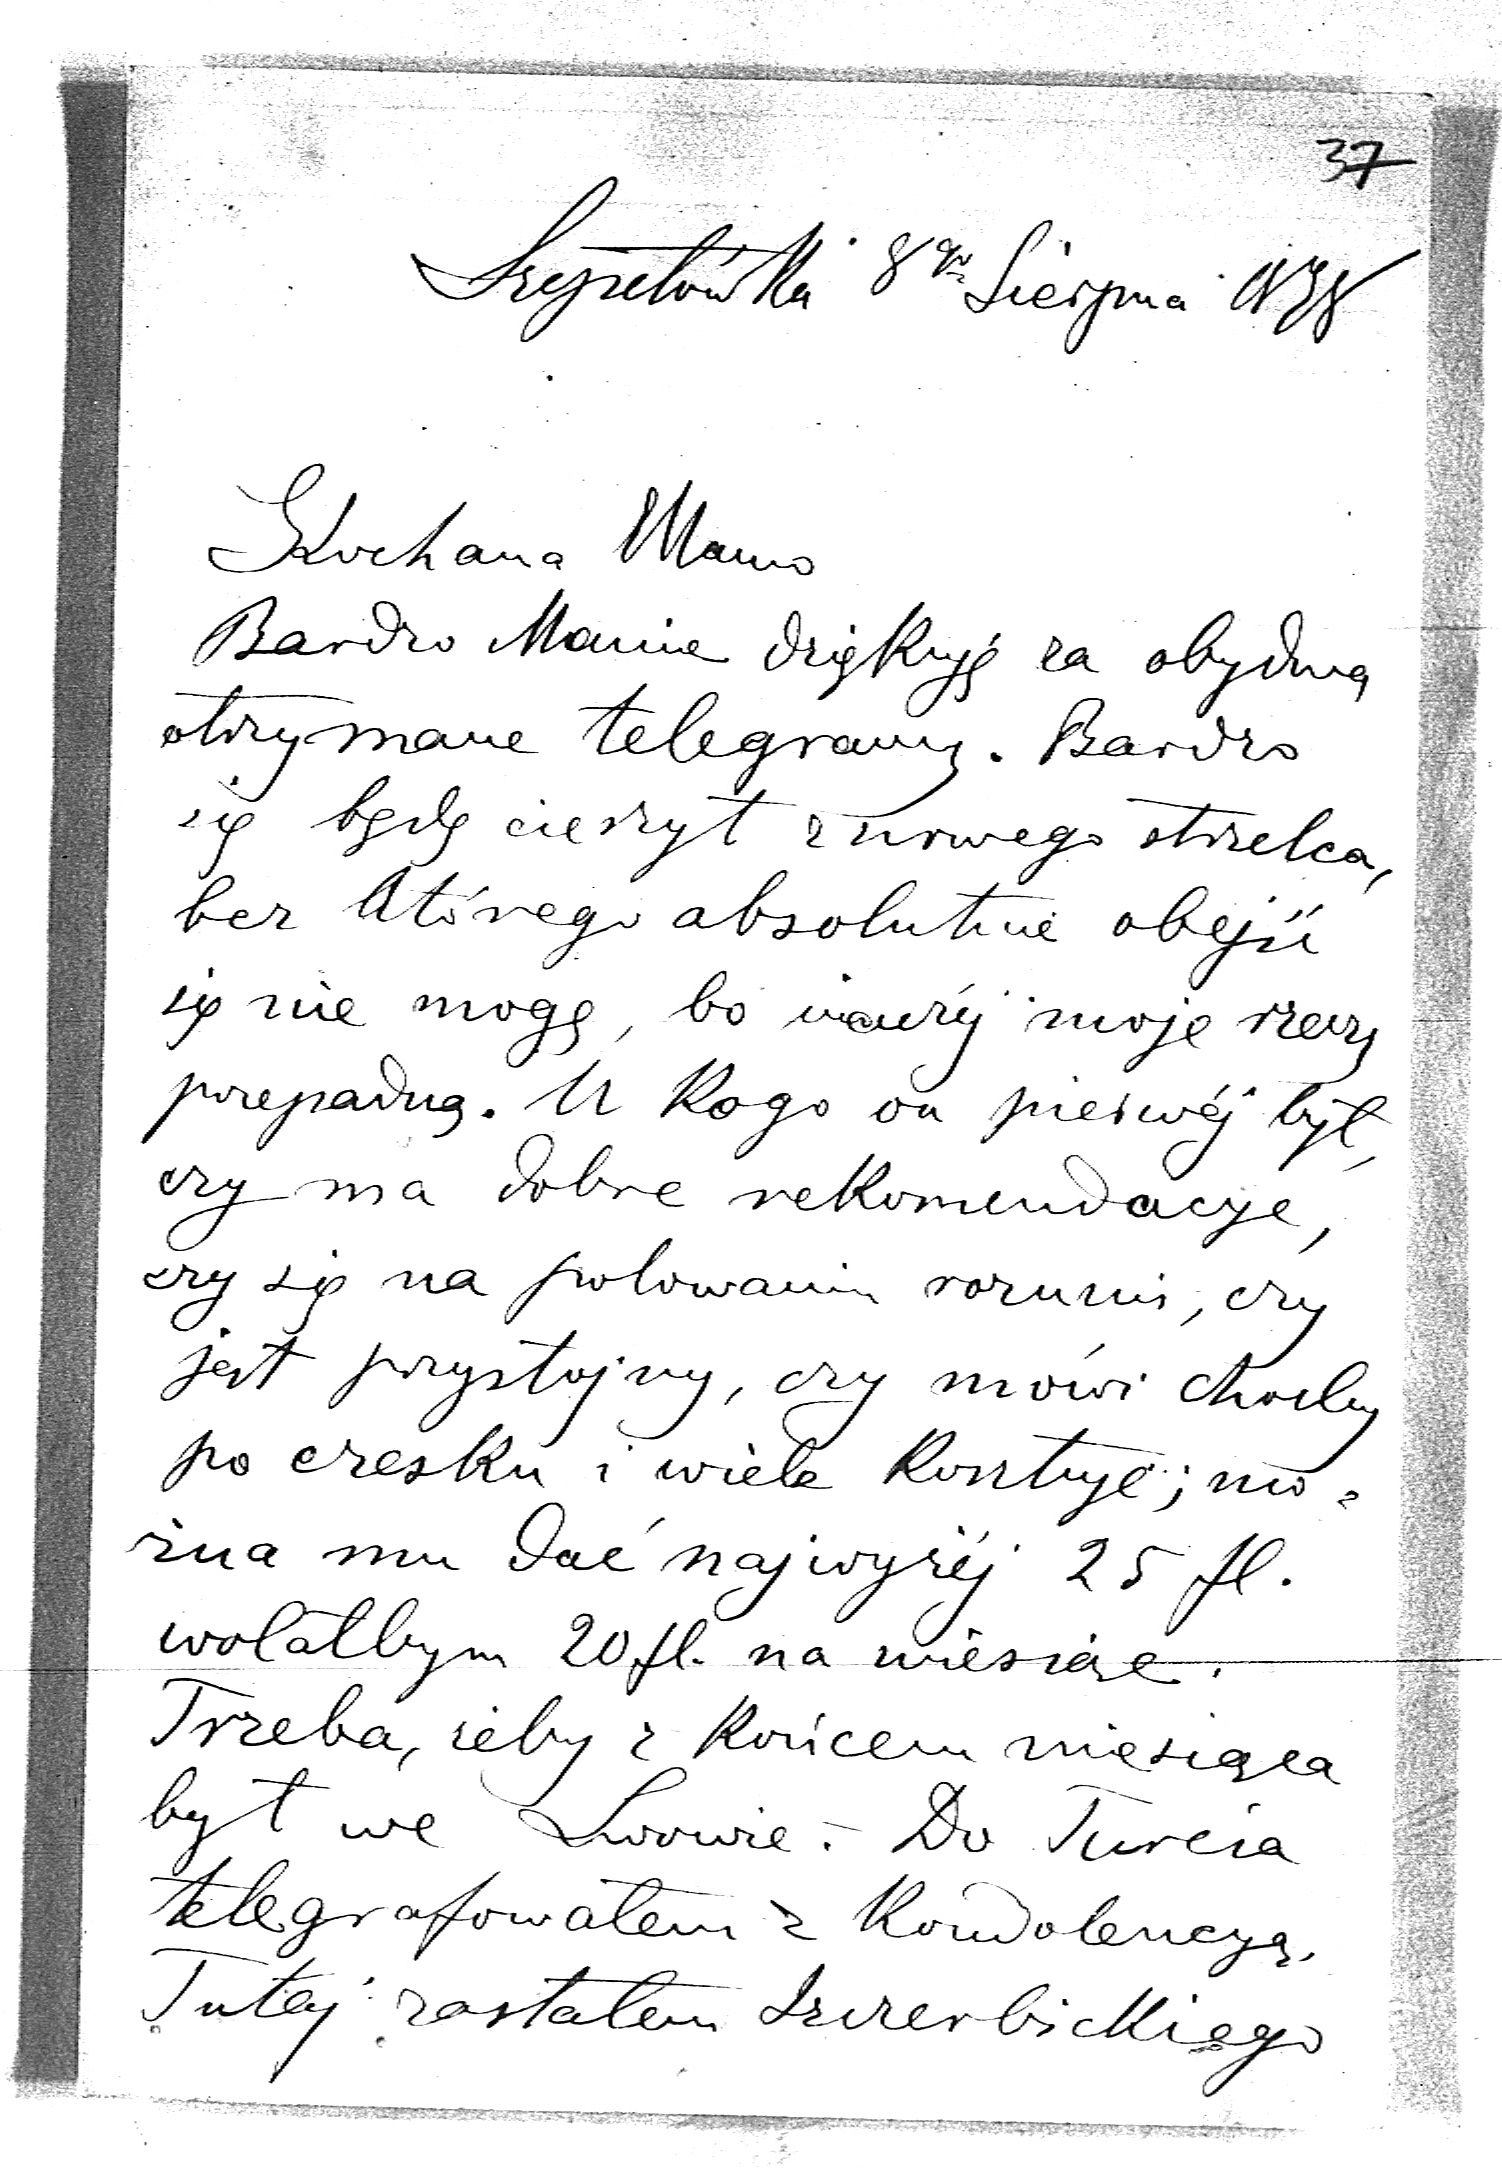 37
Szepetówka 8go Sierpnia
Kochana Mamo
Bardzo Mamie dziękuję za obydwa
otrzymane telegramy. Bardzo
się będę cieszył z nowego strzelca,
bez którego absolutnie obejść
się nie mogę, bo inaczéj moje rzeczy
przepadną. U kogo on pierwéj był,
czy ma dobre rekomendacye,
czy się na polowaniu rozumi, czy
jest przystojny, czy mówi choćby
po czesku i wiele kosztuje; mo-
żna mu dać najwyżéj 25 fl.
wolałbym 20 fl. na miesiąc.
Trzeba, żeby z końcem miesiąca
był we Lwowie. - Do Turcia
telegrafowałem z kondolencyą.
Tutaj zastałem Szczerbickiego